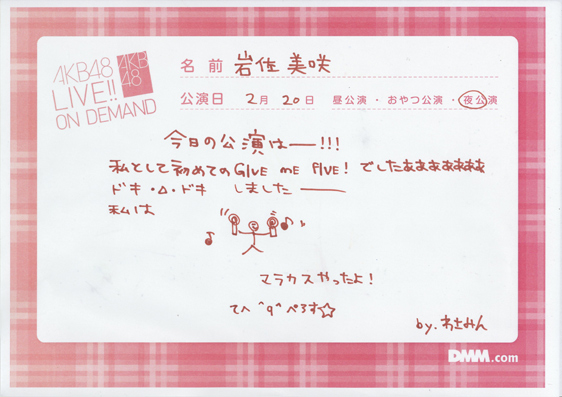 AKB48
LIVE!!
ON DEMAND
AKB
48
名前 岩佐美咲
公演日 2月20日 昼公演・おやつ公演・夜公演
今日の公演はー!!!
私として初めてのGIVE ME FIVE!でしたあぁぁぁぁぁぁ
ドキ・△・ドキ しましたー
私は
マラカスやったよ!
てへ^q^ぺろす☆
by.わさみん
DMM.com